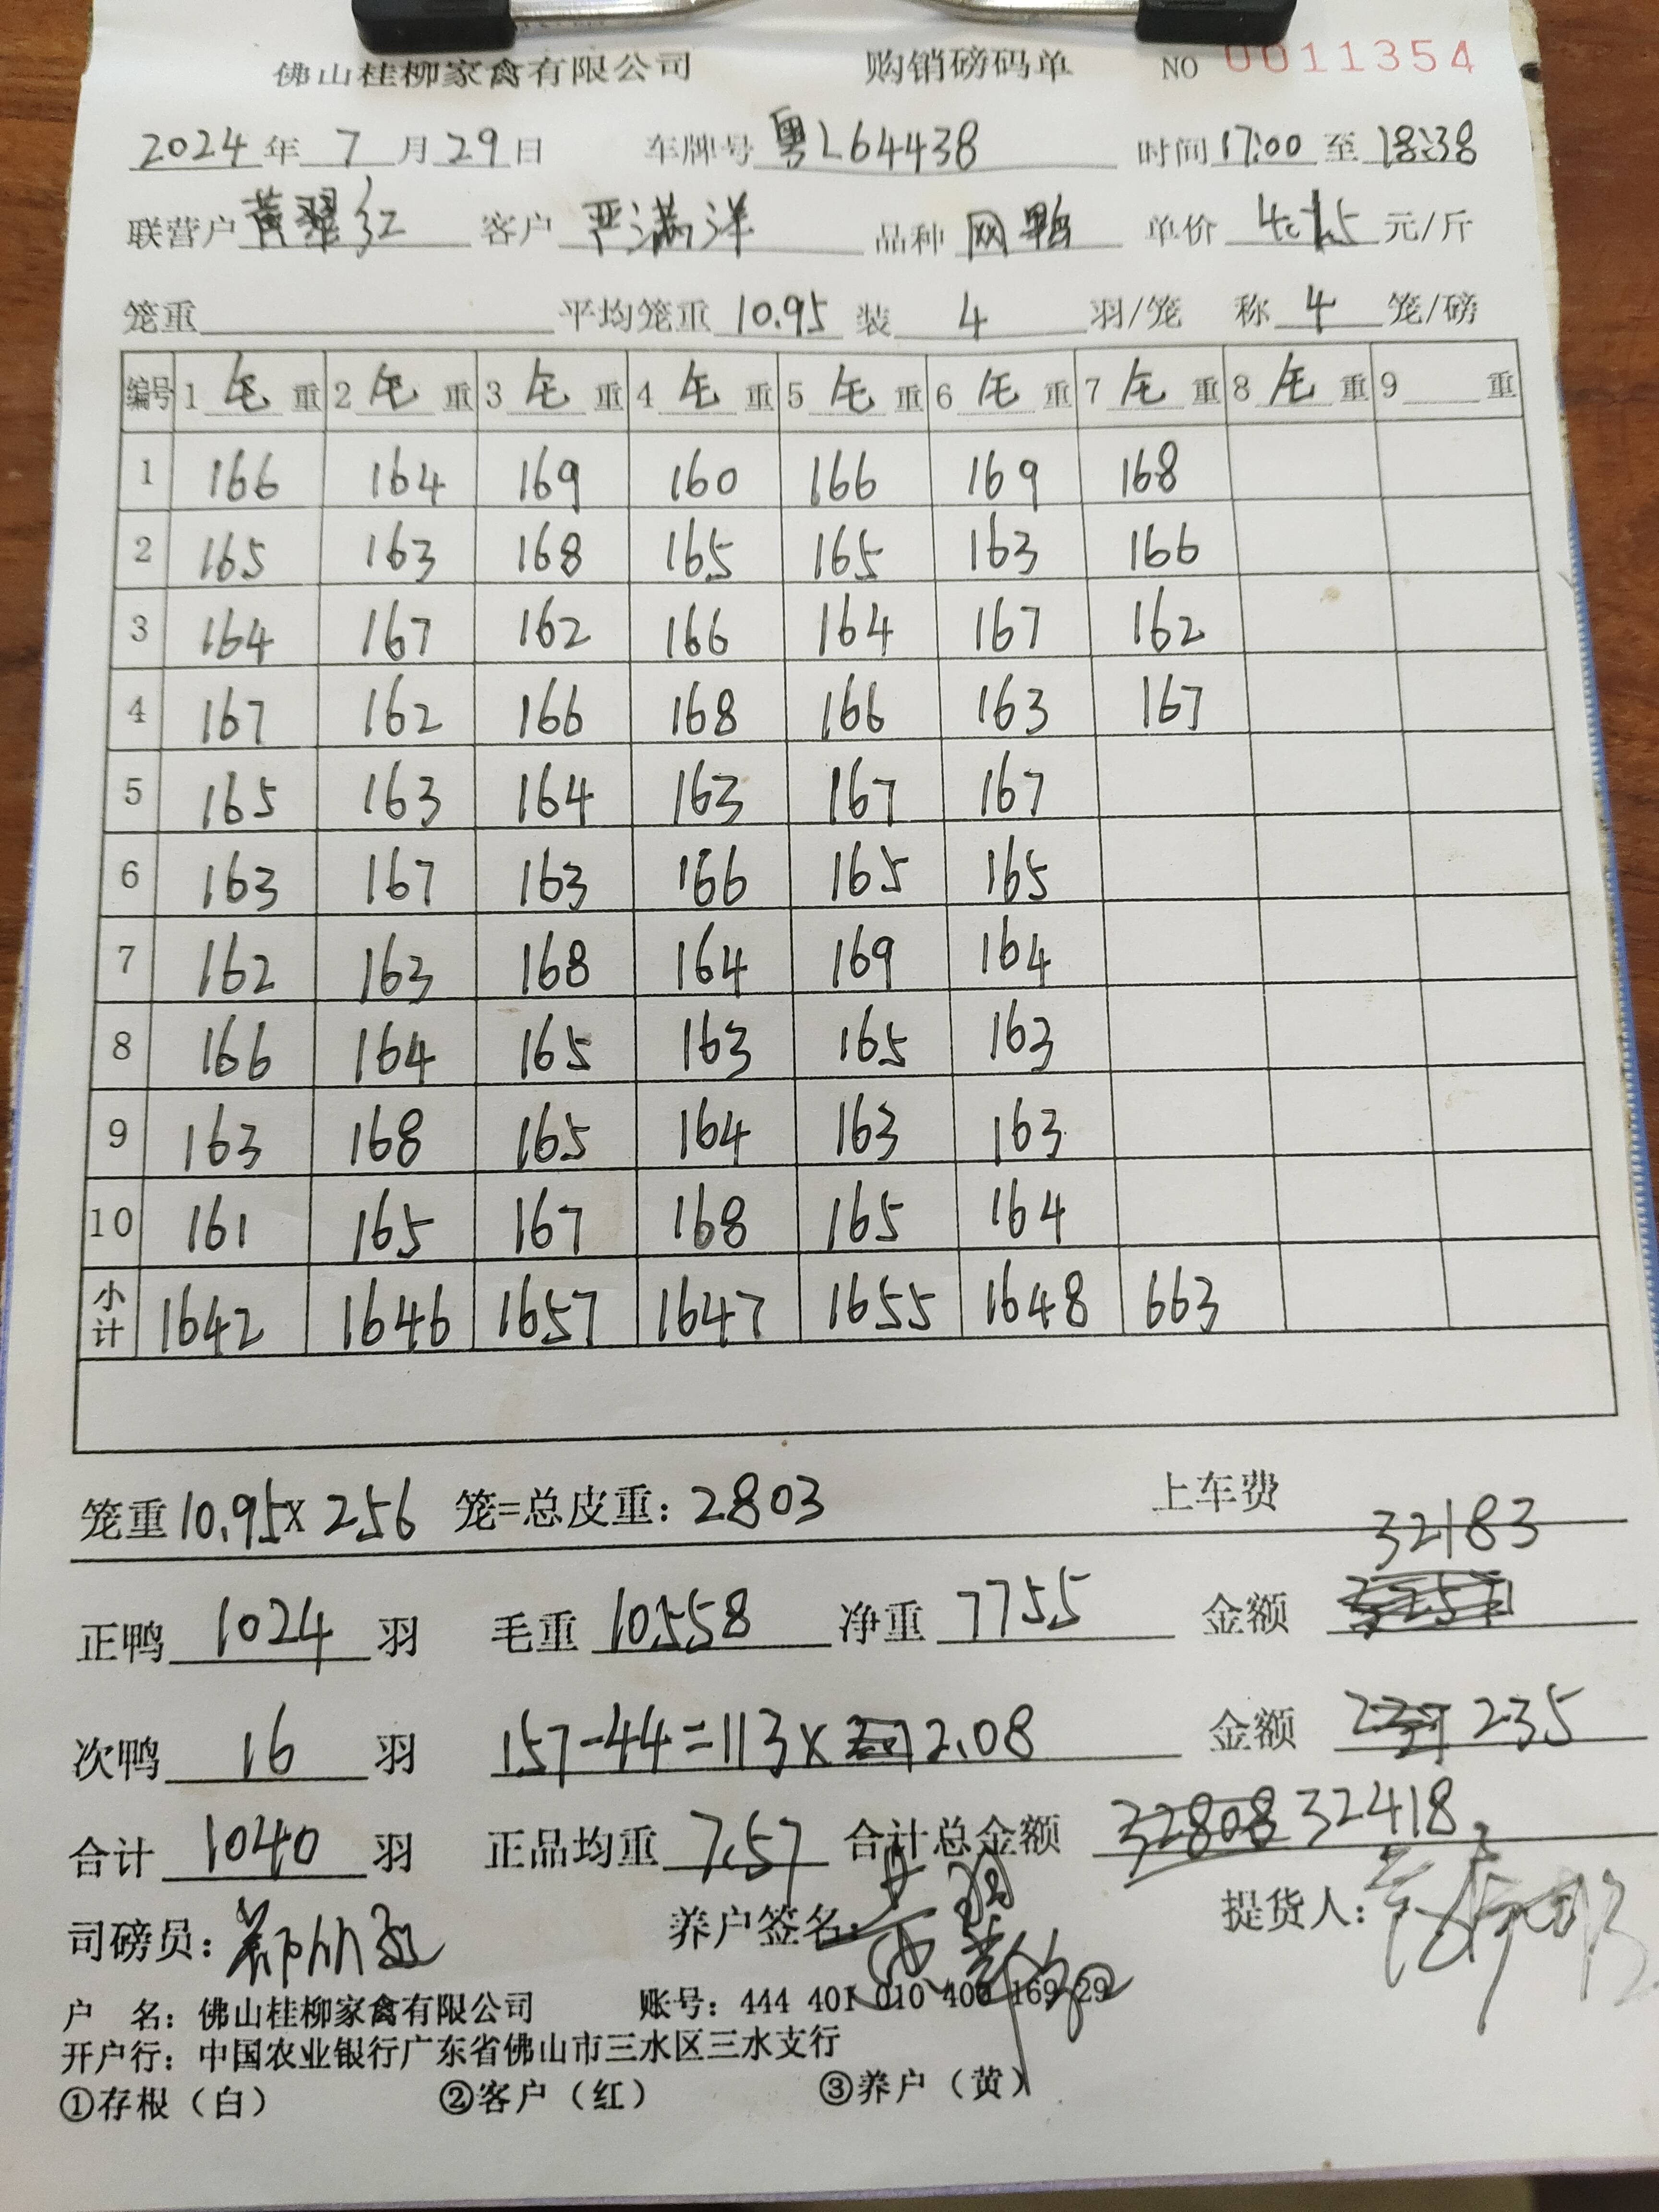 佛山桂柳家禽有限公司 购销磅码单 NO 0011354
2024年 7 月 29 日 车牌号 粤L64438 时间 17:00 至 18:38
联营户 黄翠红 客户 严满洋 品种 网鸭 单价 4.15 元/斤
笼重 平均笼重 10.95 装 4 羽/笼 称 4 笼/磅
编号 1 毛 重 2 毛 重 3 毛 重 4 毛 重 5 毛 重 6 毛 重 7 毛 重 8 毛 重 9 重
1 166 164 169 160 166 169 168
2 165 163 168 165 165 163 166
3 164 167 162 166 164 167 162
4 167 162 166 168 166 163 167
5 165 163 164 163 167 167
6 163 167 163 166 165 165
7 162 163 168 164 169 164
8 166 164 165 163 165 163
9 163 168 165 164 163 163
10 161 165 167 168 165 164
小计 1642 1646 1657 1647 1655 1648 663
笼重 10.95 x 256 笼=总皮重: 2803 上车费
正鸭 1024 羽 毛重 10558 净重 7755 金额 32183
次鸭 16 羽 157-44=113 x 2.08 金额 235
合计 1040 羽 正品均重 7.57 合计总金额 32808 32418
司磅员: 养户签名: 提货人:
户 名: 佛山桂柳家禽有限公司 账号: 444 401 010 400 169 29
开户行: 中国农业银行广东省佛山市三水区三水支行
①存根（白） ②客户（红） ③养户（黄）